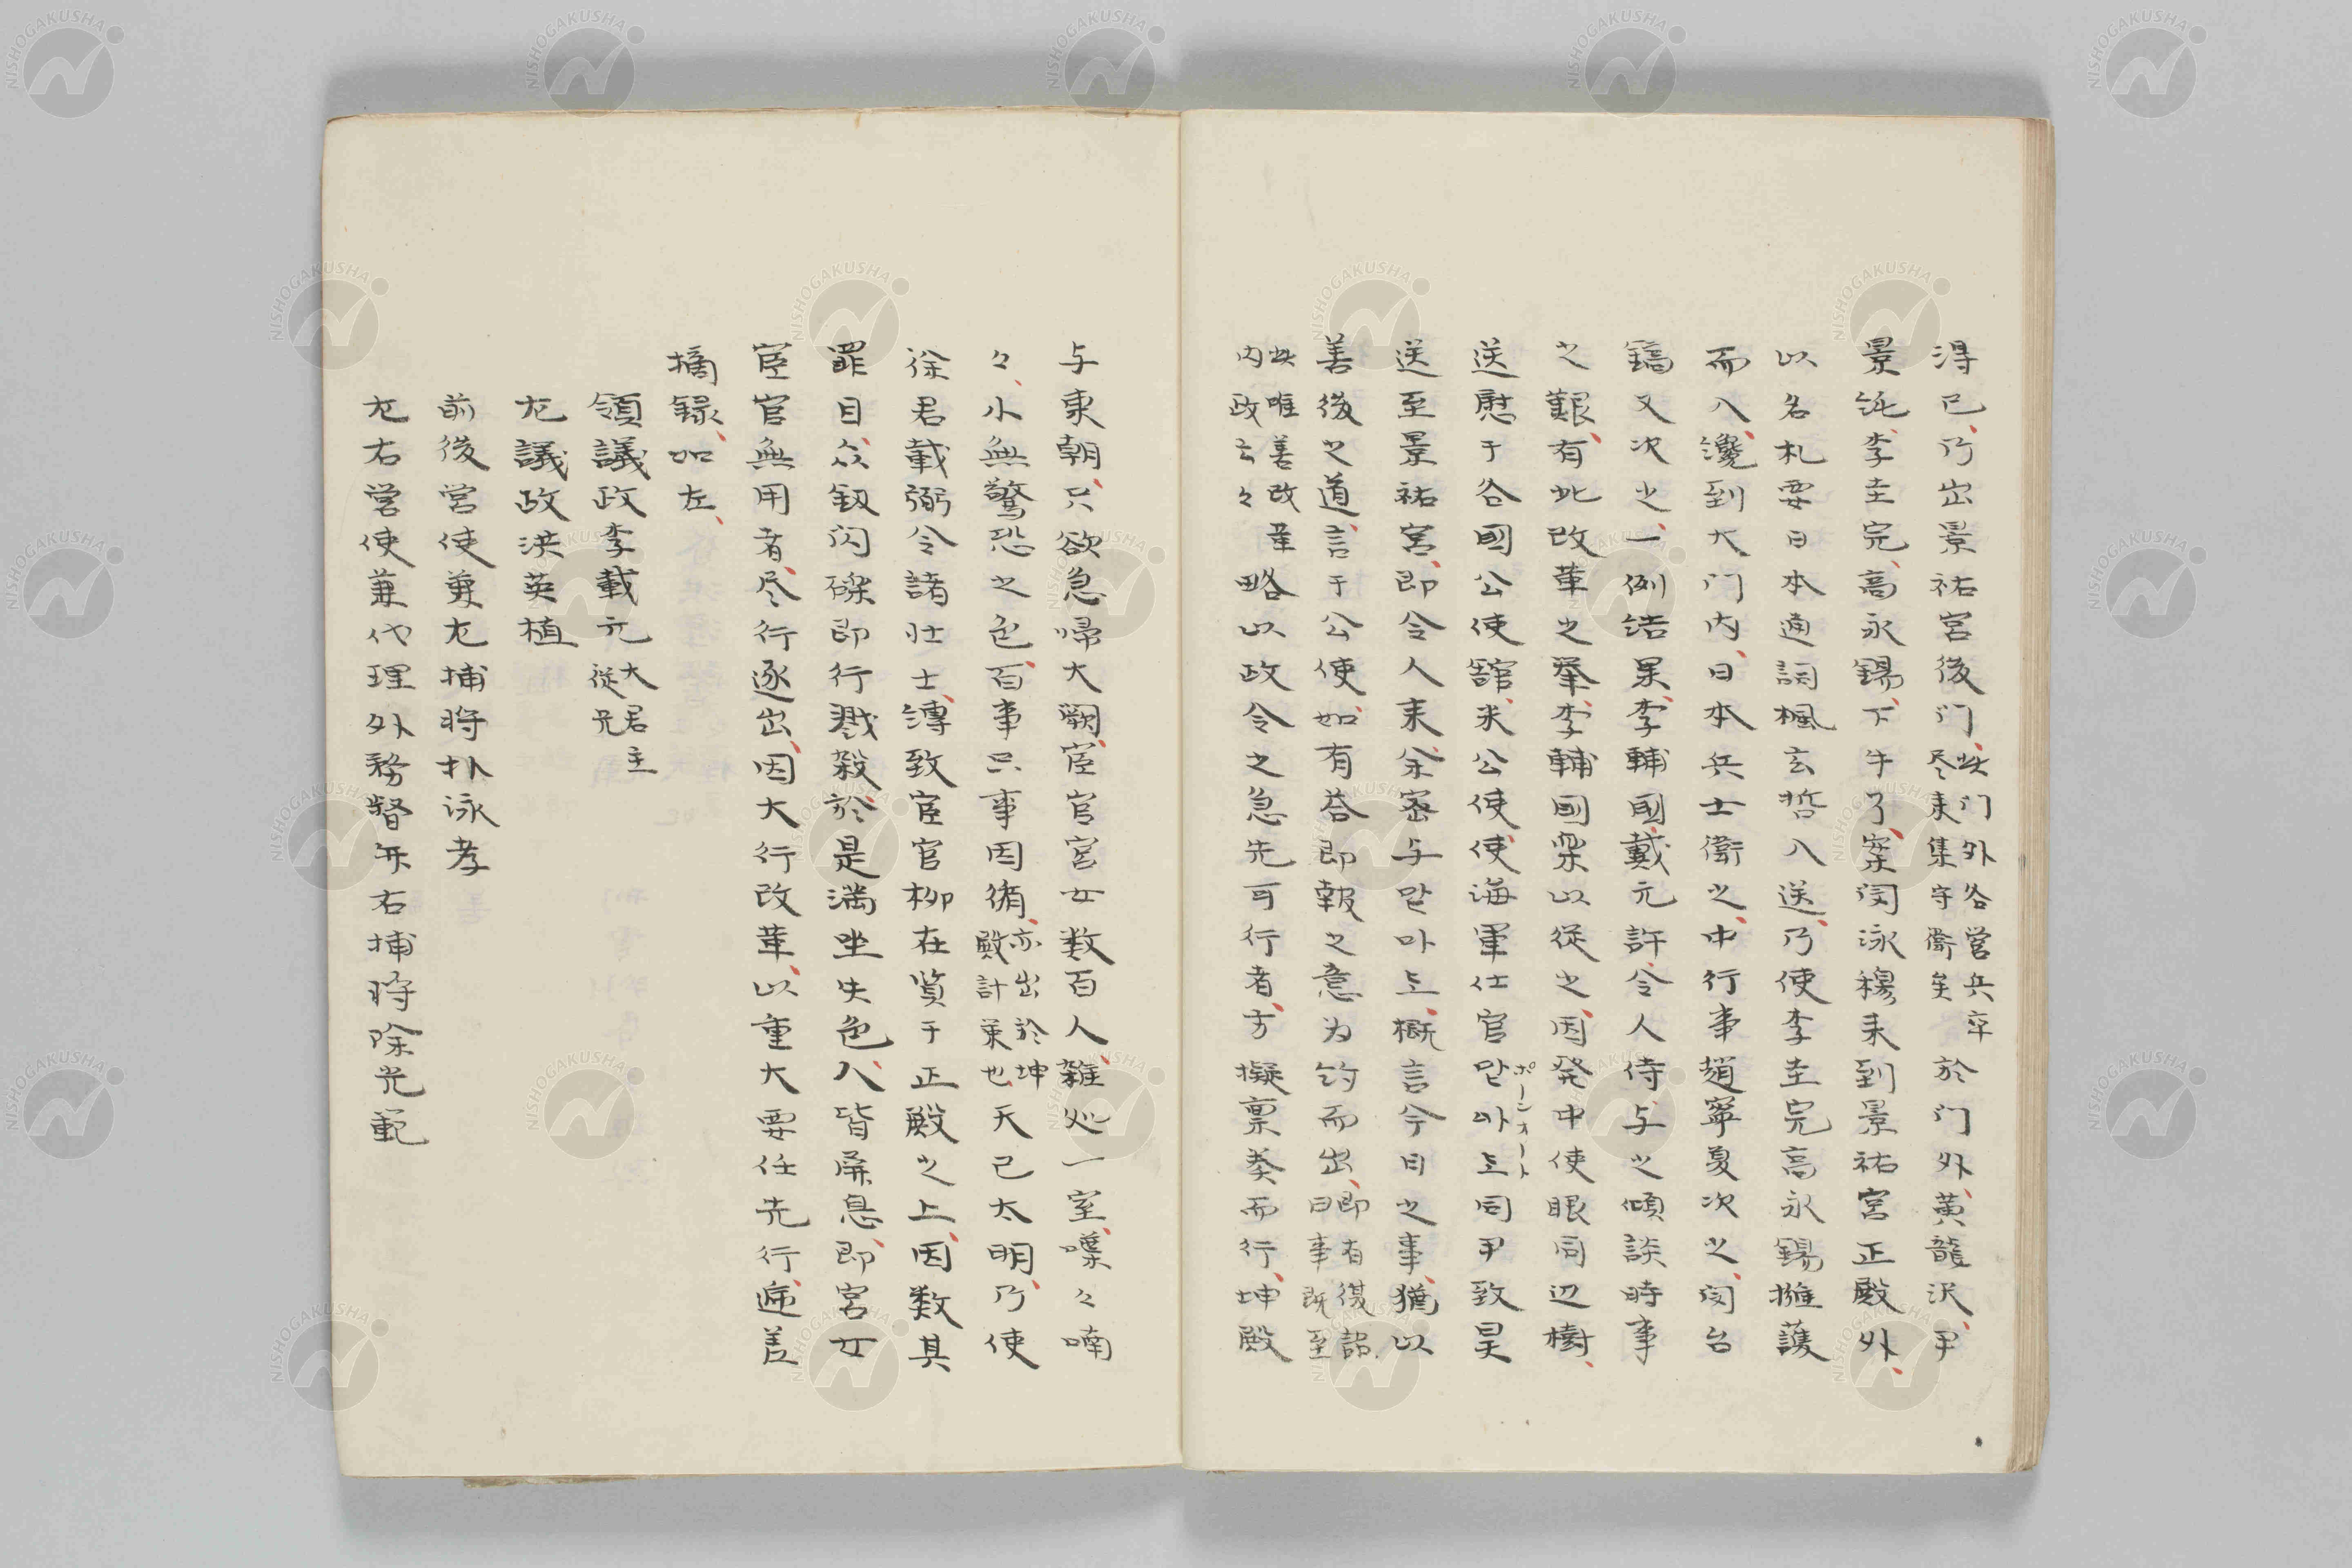 得已、乃出景祐宮後門、此门外各营兵卒尽来集守衛矣於门外、黄龍沢、尹
景純、李圭完、高永錫、下牛了、案閔泳穆来到景祐宮正殿外、
以名札要日本通詞楓玄哲入送、乃使李圭完高永錫擁護
而入、纔到大门内、日本兵士衛之、中行事趙寧夏次之、閔台
鎬又次之、一例結果、李輔國戴元許、令人侍、与之傾談時事
之艱、有此改革之挙、李輔國楽以従之、因発中使眼同辺樹、
送慰于各國公使舘、米公使使海軍仕官만아됴ポーンオート同尹致昊
送至景祐宮、即令人来、余密与만아됴、概言今日之事、猶以
善後之道、言于公使、如有答即報之意为約而出、即有復詔曰事既至
此唯善改革内政云々略以政令之急先可行者、方擬禀奏而行、坤殿
与東朝、只欲急帰大闕、宦官宮女数百人、雑処一室、喋々喃
々、小無驚恐之色、百事只事因循、亦出於坤殿計策也、天已太明、乃使
徐君載弼令諸壮士、縛致宦官柳在賢于正殿之上、因数其
罪目、众釼闪磔即行戮殺、於是満坐失色、人皆屏息、即宮女
宦官無用者、尽行逐出、因大行改革、以重大要任先行逓差
摘録、如左、
領議政李載元大君主従兄
左議政洪英植
前後営使兼左捕将朴泳孝
左右営使兼代理外務督弁右捕将徐光範